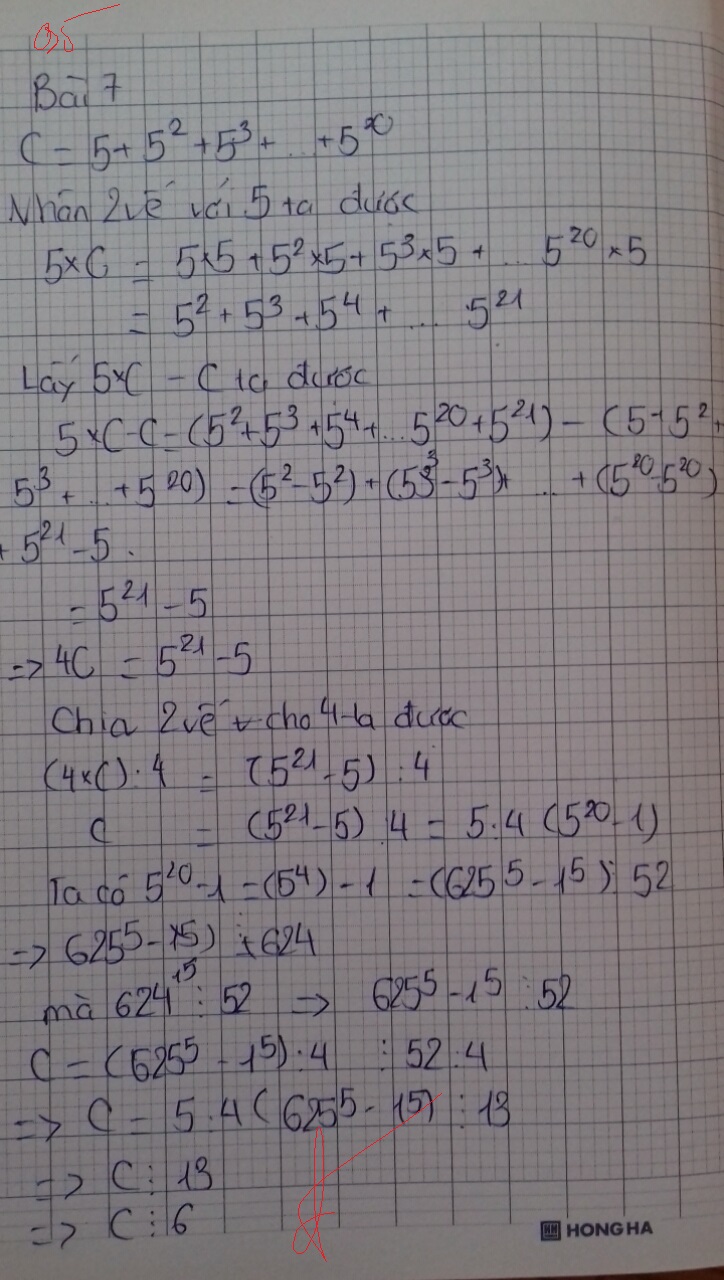 0,5
Bài 7
C = 5 + 5² + 5³ + ... + 5²⁰
Nhân 2 vế với 5 ta được
5×C = 5×5 + 5²×5 + 5³×5 + ... 5²⁰×5
= 5² + 5³ + 5⁴ + ... 5²¹
Lấy 5×C - C ta được
5×C-C = (5²+5³+5⁴+...5²⁰+5²¹) - (5+5²+
5³+...+5²⁰) = (5²-5²)+(5³-5³)+...+(5²⁰-5²⁰)
+ 5²¹ - 5.
= 5²¹ - 5
=> 4C = 5²¹ - 5
Chia 2 vế cho 4 ta được
(4×C):4 = (5²¹-5):4
C = (5²¹-5) 4 = 5.4 (5²⁰-1)
Ta có 5²⁰-1 = (5⁴) - 1 = (625⁵ - 1⁵) ⋮ 52
=> 625⁵ - 1⁵) ⋮ 624
mà 624 ⋮ 52 => 625⁵ - 1⁵ ⋮ 52
C = (625⁵ - 1⁵):4 ⋮ 52:4
=> C = 5.4 (625⁵ - 1⁵) ⋮ 13
=> C ⋮ 13
=> C ⋮ 6
HONG HA